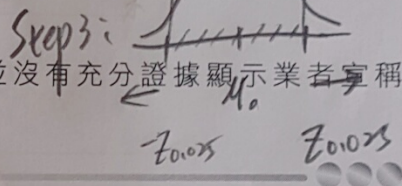 Step3:
並沒有充分證據顯示業者宣稱
μ₀
-Z0.025 Z0.025